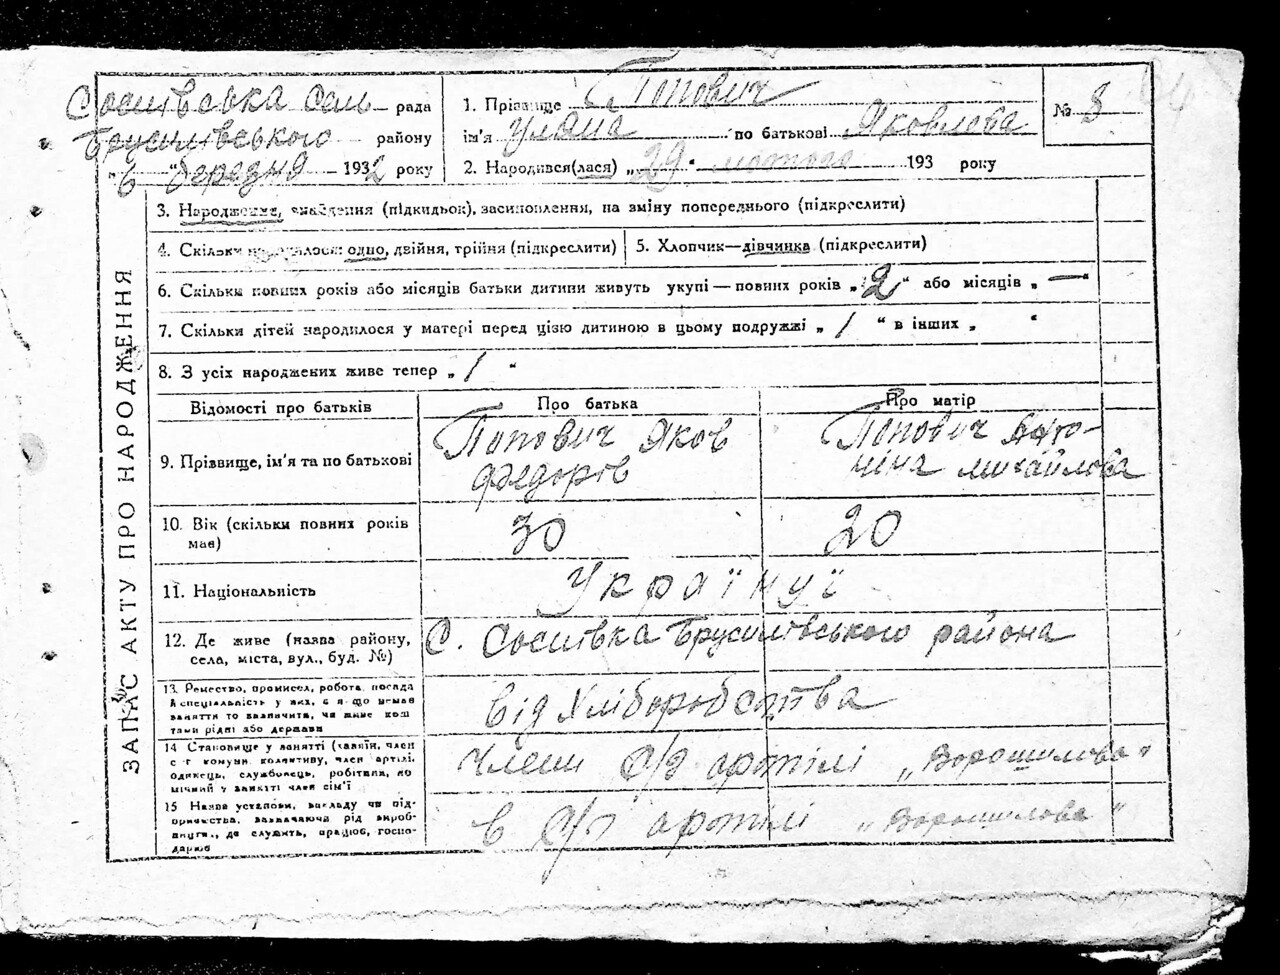 Соснівська Сель рада
Брусилівського району
"6 березня 1932 року
1. Прізвище Попович
ім'я Уляна по батькові Яковлева
2. Народився(лася) „29" лютого 193 року
№ 8
ЗАПИС АКТУ ПРО НАРОДЖЕННЯ
3. Народження, знайдення (підкидьок), засиновлення, на зміну попереднього (підкреслити)
4. Скільки народилося: одно, двійня, трійня (підкреслити)
5. Хлопчик—дівчинка (підкреслити)
6. Скільки повних років або місяців батьки дитини живуть укупі — повних років „2" або місяців „—"
7. Скільки дітей народилося у матері перед цією дитиною в цьому подружжі „1" в інших „ "
8. З усіх народжених живе тепер „1"
Відомості про батьків Про батька Про матір
9. Прізвище, ім'я та по батькові
Попович Яков
Федорів
Попович Анто-
ніна Михайлова
10. Вік (скільки повних років
має)
30 20
11. Національність Українці
12. Де живе (назва району,
села, міста, вул., буд. №)
С. Соснівка Брусилівського района
13. Ремество, промисел, робота, посада
й спеціяльність у них, а якщо немає
заняття то зазначити, чи живе кош
тами рідні або держави
від Хліборобства
14 Становище у занятті (хазяїн, член
с г комуни колективу, член артілі,
одинець, службовець, робітник, по
мічний у занятті член сім'ї
Члени С/г артілі „Ворошилова"
15 Назва установи, закладу чи під-
приємства, зазначаючи рід вироб-
ництв., де служить, працює, госпо-
дарює
в С/г артілі „Ворошилова"